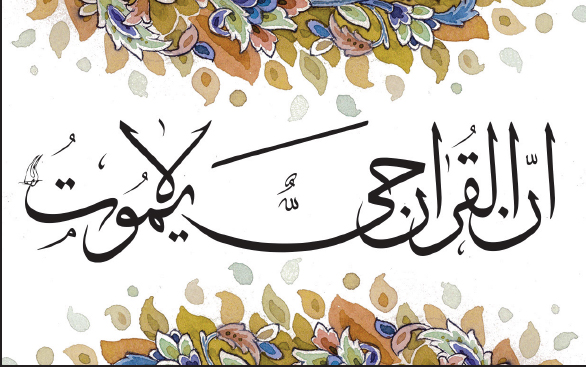 انّ القُران حیٌّ لایمُوتُ